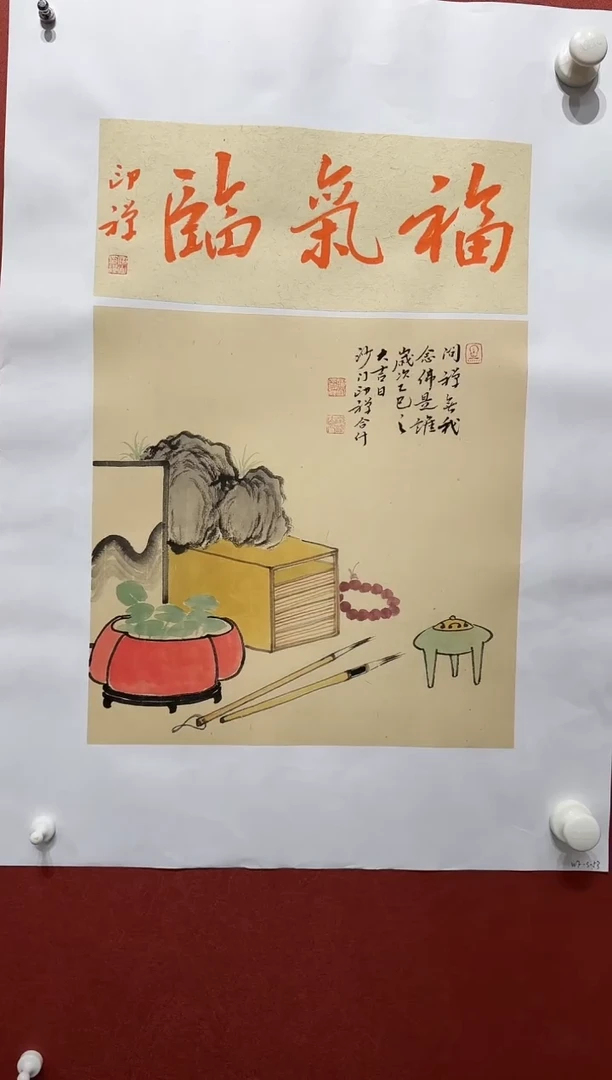 福氣臨
印禪
問禪無我
念佛是誰
歲次乙巳之
大吉日
沙門印禪合什